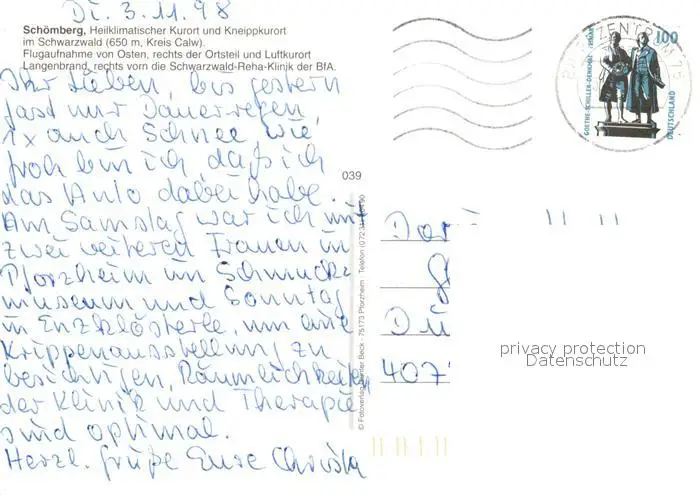 Di. 3.11.98
Schömberg, Heilklimatischer Kurort und Kneippkurort
im Schwarzwald (650 m, Kreis Calw).
Flugaufnahme von Osten, rechts der Ortsteil und Luftkurort
Langenbrand, rechts vorn die Schwarzwald-Reha-Klinik der BfA.
Ihr Lieben, bis gestern
fast nur Dauerregen,
1x auch Schnee wie
froh bin ich, daß ich
das Auto dabei habe.
Am Samstag war ich mit
zwei weiteren Frauen in
Pforzheim im Schmuck-
museum und Sonntag
in Enzklösterle, um eine
Krippenausstellung zu
besichtigen. Räumlichkeiten
der Klinik und Therapie
sind optimal.
Herzl. Grüße Eure Christa
039
© Fotoverlag Beck · 75173 Pforzheim · Telefon
100
GOETHE-SCHILLER-DENKMAL
DEUTSCHLAND
BRIEFZENTRUM 75
Dor
Dü
407
privacy protection
Datenschutz